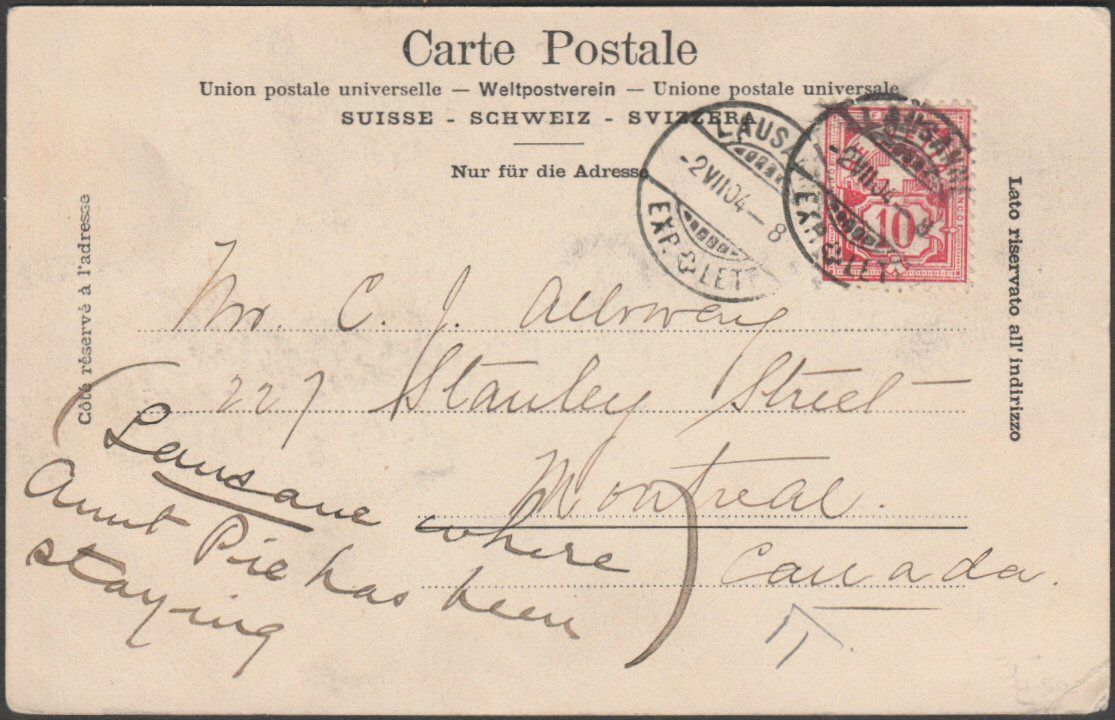 Carte Postale
Union postale universelle — Weltpostverein — Unione postale universale
SUISSE - SCHWEIZ - SVIZZERA
Nur für die Adresse
Côté réservé à l'adresse
Lato riservato all' indirizzo
LAUSA
-2 VII 04 - 8
EXP. LETT
LAUSANN
-2 VII 04. 8
EXP. LET
FRANCO
10
Mr. C. J. Alloway
227 Stanley Street
Montreal.
Canada.
(Lausane where
Aunt Pie has been
staying)